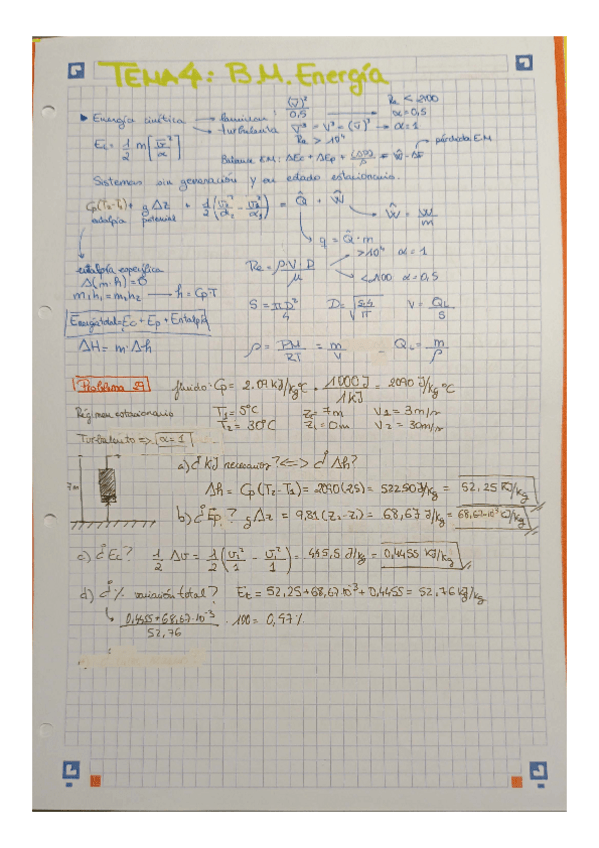 TEMA 4: B.M. Energía
▸ Energía cinética → laminar: (v̄)³/0,5 → Re < 2100 α=0,5
→ turbulenta v̄³ = V³ = (v̄)³ → α=1
Re > 10⁴
Ec = 1/2 m [v²/α]
Balance EM: ΔEc + ΔEp + = Ŵ - → pérdida EM
Sistemas sin generación y en estado estacionario.
Cp(T₂-T₁) + gΔz + 1/2 (v₂²/α₂ - v₁²/α₁) = Q̂ + Ŵ
entalpía potencial
Ŵ = W/m
q = Q̂·m
entalpía específica
Δ(m·h) = 0
m₁h₁ = m₂h₂ → h = Cp·T
Re = ρ·V·D/μ → >10⁴ α=1
→ <2100 α=0,5
S = πD²/4 D = √(S4/π) V = QL/S
Energía total = Ec + Ep + Entalpía
ΔH = m·Δh
ρ = PM/RT = m/V QL = m/ρ
Problema fluido: Cp = 2.09 kJ/kgºC · 1000J/1KJ = 2090 J/kgºC
Régimen estacionario T₁ = 5ºC z₂ = 7m V₁ = 3m/s
T₂ = 30ºC z₁ = 0m V₂ = 30m/s
Turbulento => α=1
7m
a) ¿KJ necesarios? <=> ¿Δh?
Δh = Cp(T₂-T₁) = 2090(25) = 52250 J/kg = 52,25 KJ/kg
b) ¿Ep? gΔz = 9,81(z₂-z₁) = 68,67 J/kg = 68,67·10⁻³ KJ/kg
c) ¿Ec? 1/2 Δv = 1/2 (v₂²/1 - v₁²/1) = 445,5 J/kg = 0,4455 KJ/kg
d) ¿% variación total? Et = 52,25+68,67·10⁻³+0,4455 = 52,76 KJ/kg
↳ 0,4455+68,67·10⁻³/52,76 · 100 = 0,97%